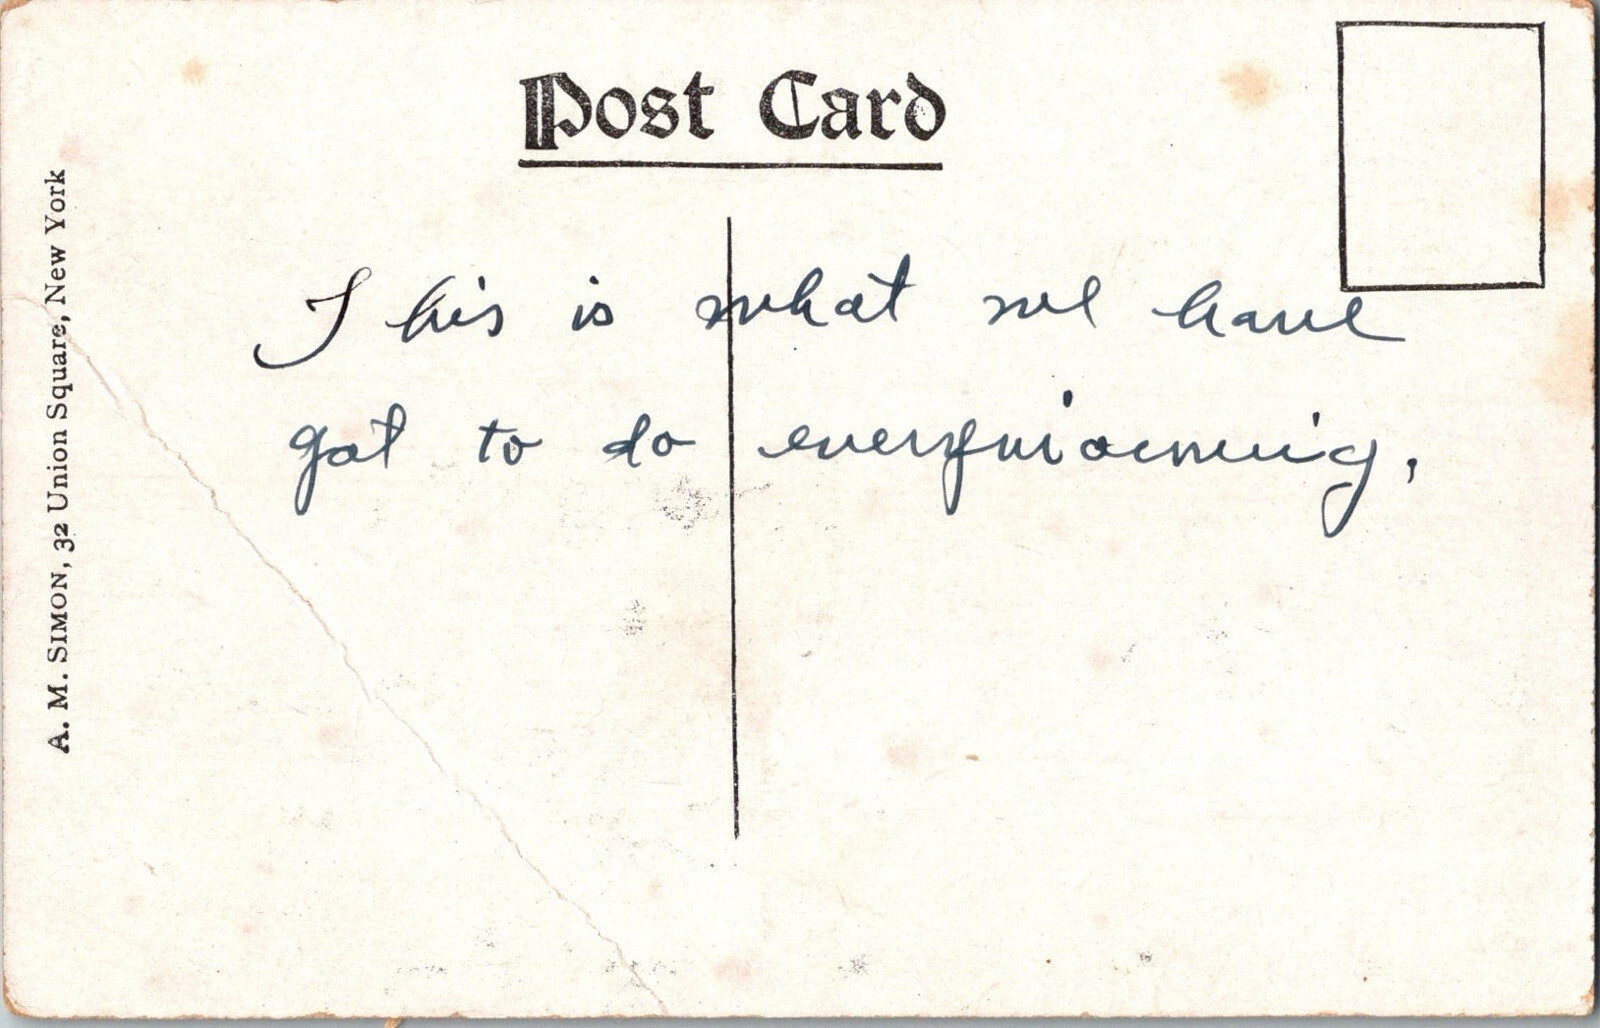 Post Card
This is what we have
got to do everymorning.
A. M. SIMON, 32 Union Square, New York